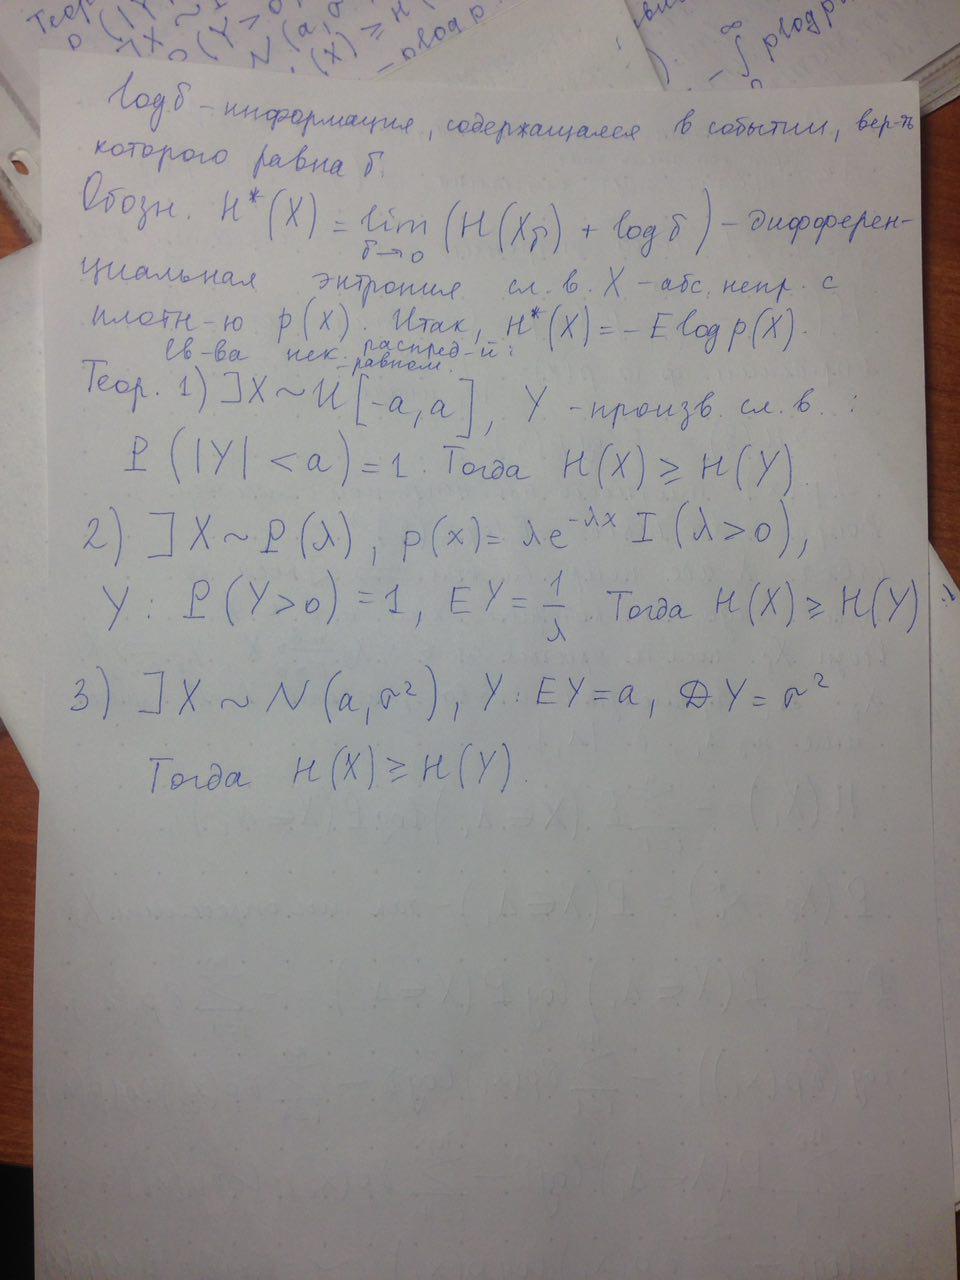 Теор
log p
p log p
log δ – информация, содержащаяся в событии, вер-ть
которого равна δ.
Обозн. H*(X) = lim (H(X_δ) + log δ) – дифферен-
δ→0
циальная энтропия сл. в. X – абс. непр. с
плотн-ю p(x). Итак, H*(X) = – E log p(X).
Св-ва нек. распред-й:
– равном.
Теор. 1) ∃ X ~ U [-a, a], Y – произв. сл. в. :
P (|Y| < a) = 1. Тогда H(X) ≥ H(Y)
2) ∃ X ~ P(λ), p(x) = λe^{-λx} I (λ > 0),
Y : P (Y > 0) = 1, EY = 1/λ Тогда H(X) ≥ H(Y)
3) ∃ X ~ N (a, σ²), Y : EY = a, DY = σ²
Тогда H(X) ≥ H(Y).